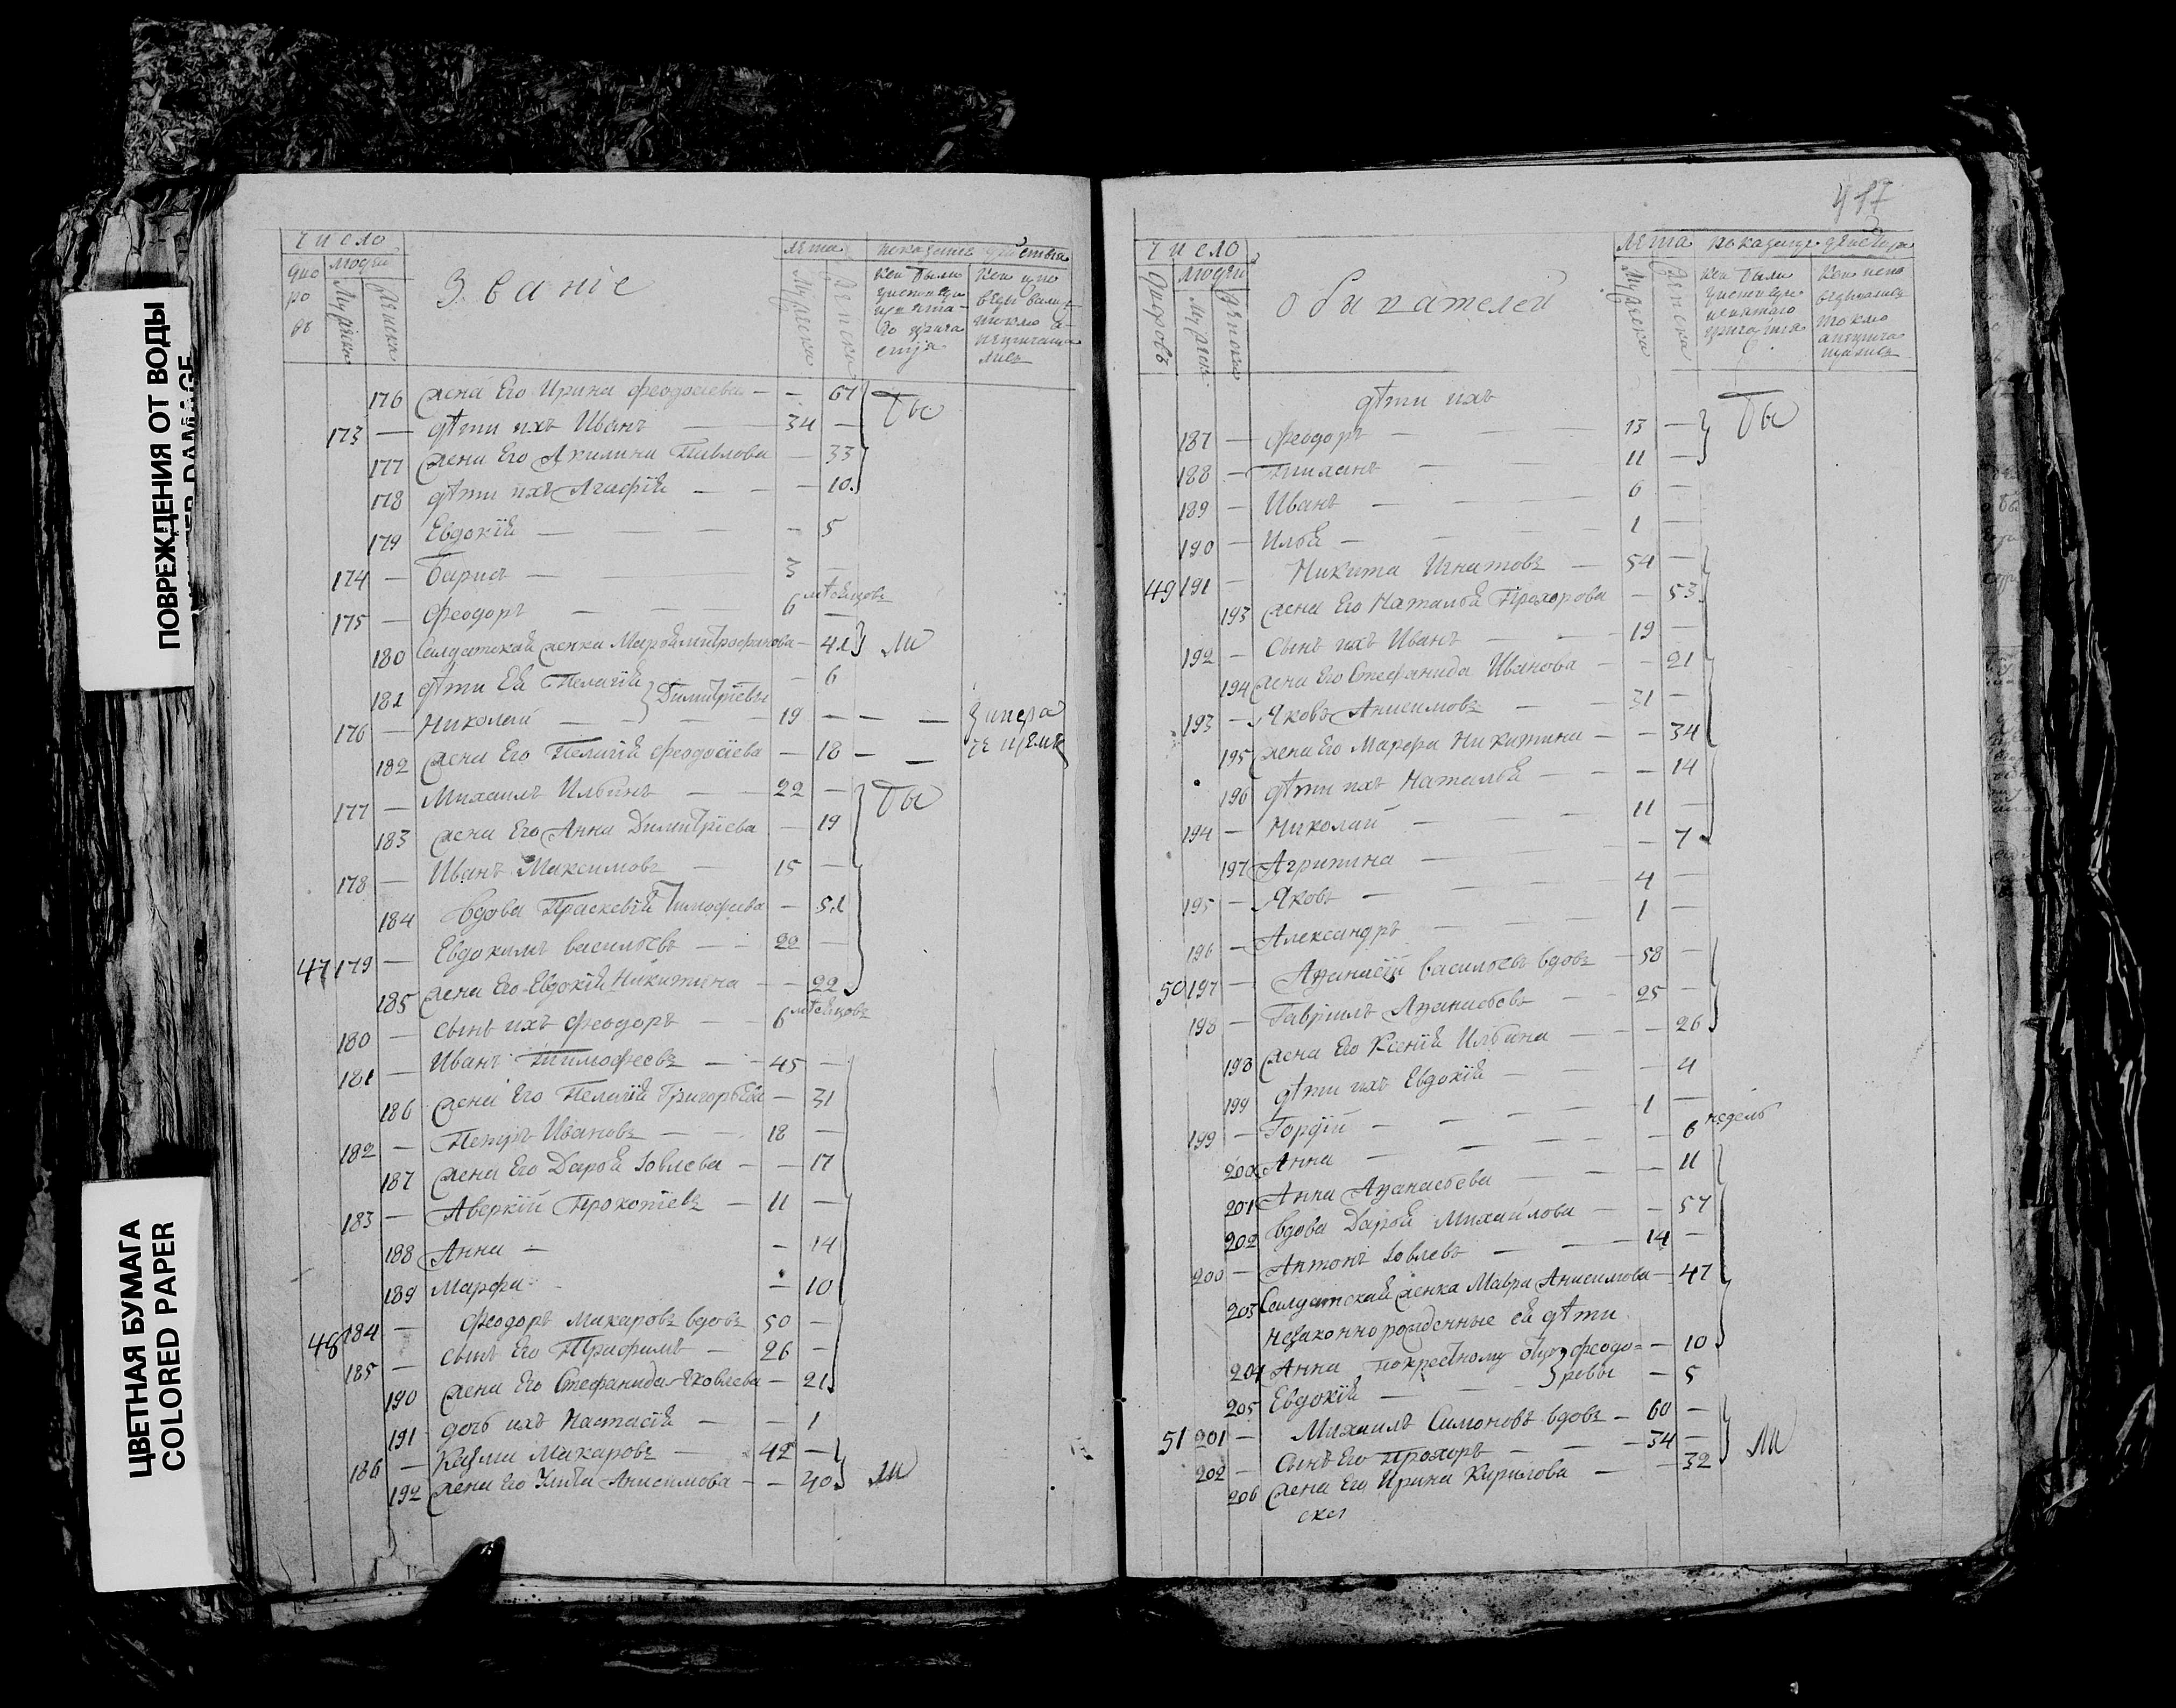 ПОВРЕЖДЕНИЯ ОТ ВОДЫ
ЦВЕТНАЯ БУМАГА
COLORED PAPER
число
людей
Званіе
лѣта
176 жена Его Ирина Феодосіева — — 67
Бы
173 — дѣти ихъ Иванъ — 34 —
177 жена Его Акилина Павлова — 33
178 дѣти ихъ Агафія — — — 10
179 Евдокія — — — 5
174 — Барисъ — 3 —
175 — Феодоръ — — 6 мѣсяцовъ
180 Салдатская женка Марфа Митрофанова — 41 ли
181 дѣти Ея Пелагія Димитріевы — 6
176 — Николай — — 19 — — —
182 жена Его Пелагія Феодосіева — 18 — —
177 — Михаилъ Ильинъ — — 22 —
Бы
183 жена Его Анна Димитріева — 19
178 — Иванъ Максимовъ — 15 —
184 вдова Праскевія Тимофеева — 51
47 179 — Евдокимъ васильевъ — — 22 —
185 жена Его Евдокія Никитина — — 22
180 — сынъ ихъ Феодоръ — — 6 мѣсяцовъ
181 — Иванъ Тимофеевъ — — 45 —
186 жена Его Пелагія Григорьева — 31
182 — Петръ Ивановъ — — 18 —
187 жена Его Дарья Іовлева — — 17
183 — Аверкій Прокопіевъ — 11 —
188 Анна — — 14
189 Марфа — — 10
48 184 — Феодоръ Макаровъ вдовъ 50 —
185 — сынъ Его Трифилъ — 26 —
190 жена Его Стефанида Яковлева — 21
191 дочь ихъ Настасія — — 1
186 — Козма Макаровъ — 42 —
192 жена Его Улита Анисимова — — 40 ли
417
число
людей
обывателей
лѣта
дѣти ихъ
Бы
187 — Феодоръ — — — 13 —
188 — — — 11 —
189 — Иванъ — — — 6 —
190 — Илья — — — 1 —
49 191 — Никита Игнатовъ — 54 —
193 жена Его Наталья Прохорова — 53
192 — Сынъ ихъ Иванъ — — 19 —
194 жена Его Стефанида Иванова — — 21
193 — Яковъ Анисимовъ — — 31 —
195 жена Его Марфа Никитина — — 34
196 дѣти ихъ Наталья — — — 14
194 — Николай — — — 11 —
197 Агрипина — — — 7
195 — Яковъ — — — 4 —
196 — Александръ — — — 1 —
50 197 — Афанасій васильевъ вдовъ — 58 —
198 — Гавріилъ Афанасьевъ — — 25 —
198 жена Его Ксенія Ильина — — 26
199 дѣти ихъ Евдокія — — — 4
199 — Гордій — — — 1 —
200 Анна — — — — 6 недель
201 Анна Афанасьева — — — 11
202 вдова Дарья Михайлова — — 57
200 — Антонъ Іовлевъ — — — 14 —
203 Салдатская женка Мавра Анисимова — 47
незаконнорожденные ея дѣти
204 Анна покрестному отцу Феодо= — 10
205 Евдокія — — — ровы — 5
51 201 — Михаилъ Симоновъ вдовъ — 60 —
202 — Сынъ Его Прохоръ — — — 34 —
ли
206 жена Его Ирина Кирилова — — 32